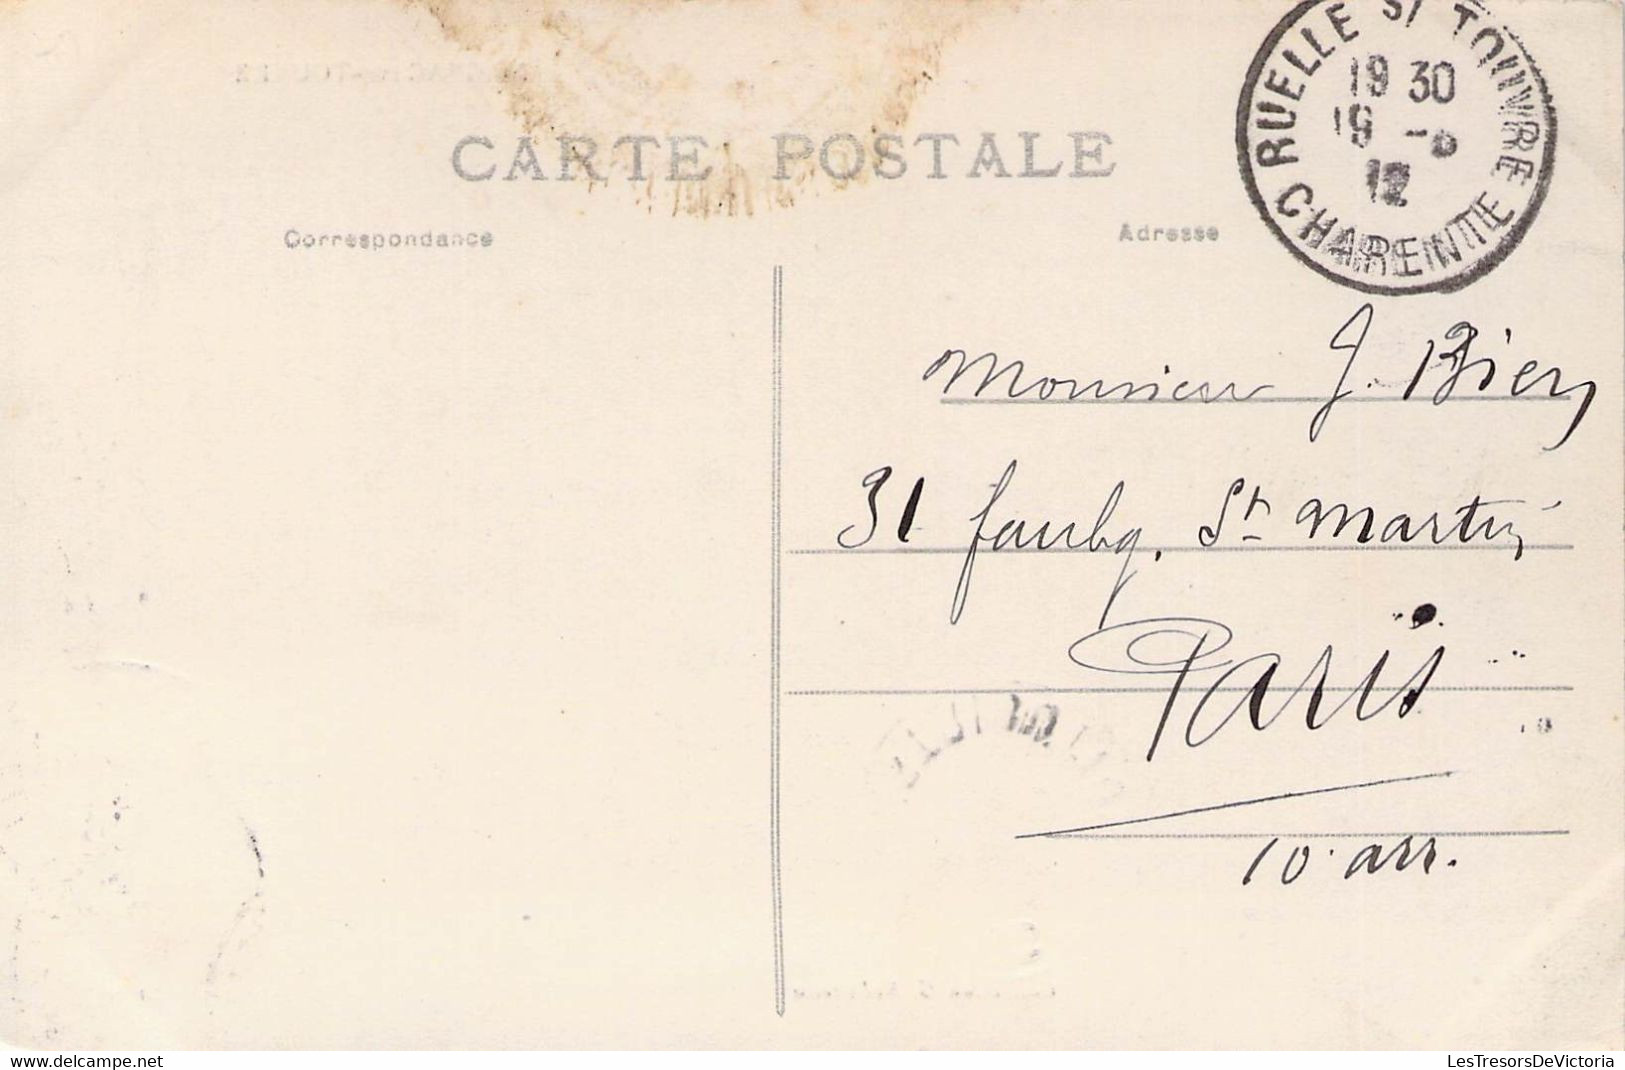 CARTE POSTALE
Correspondance
Adresse
RUELLE S/ TOUVRE
19 30
19 -
12
CHARENTE
Monsieur J. Biery
31 faubg. St Martin
Paris
10 arr.
www.delcampe.net
LesTresorsDeVictoria